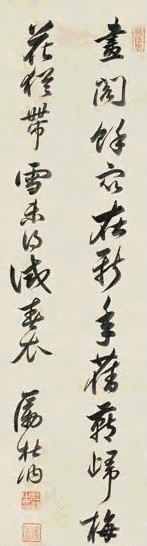 畫閣餘寒在新年舊燕歸梅
花猶帶雪未得試春衣 厲杜訥